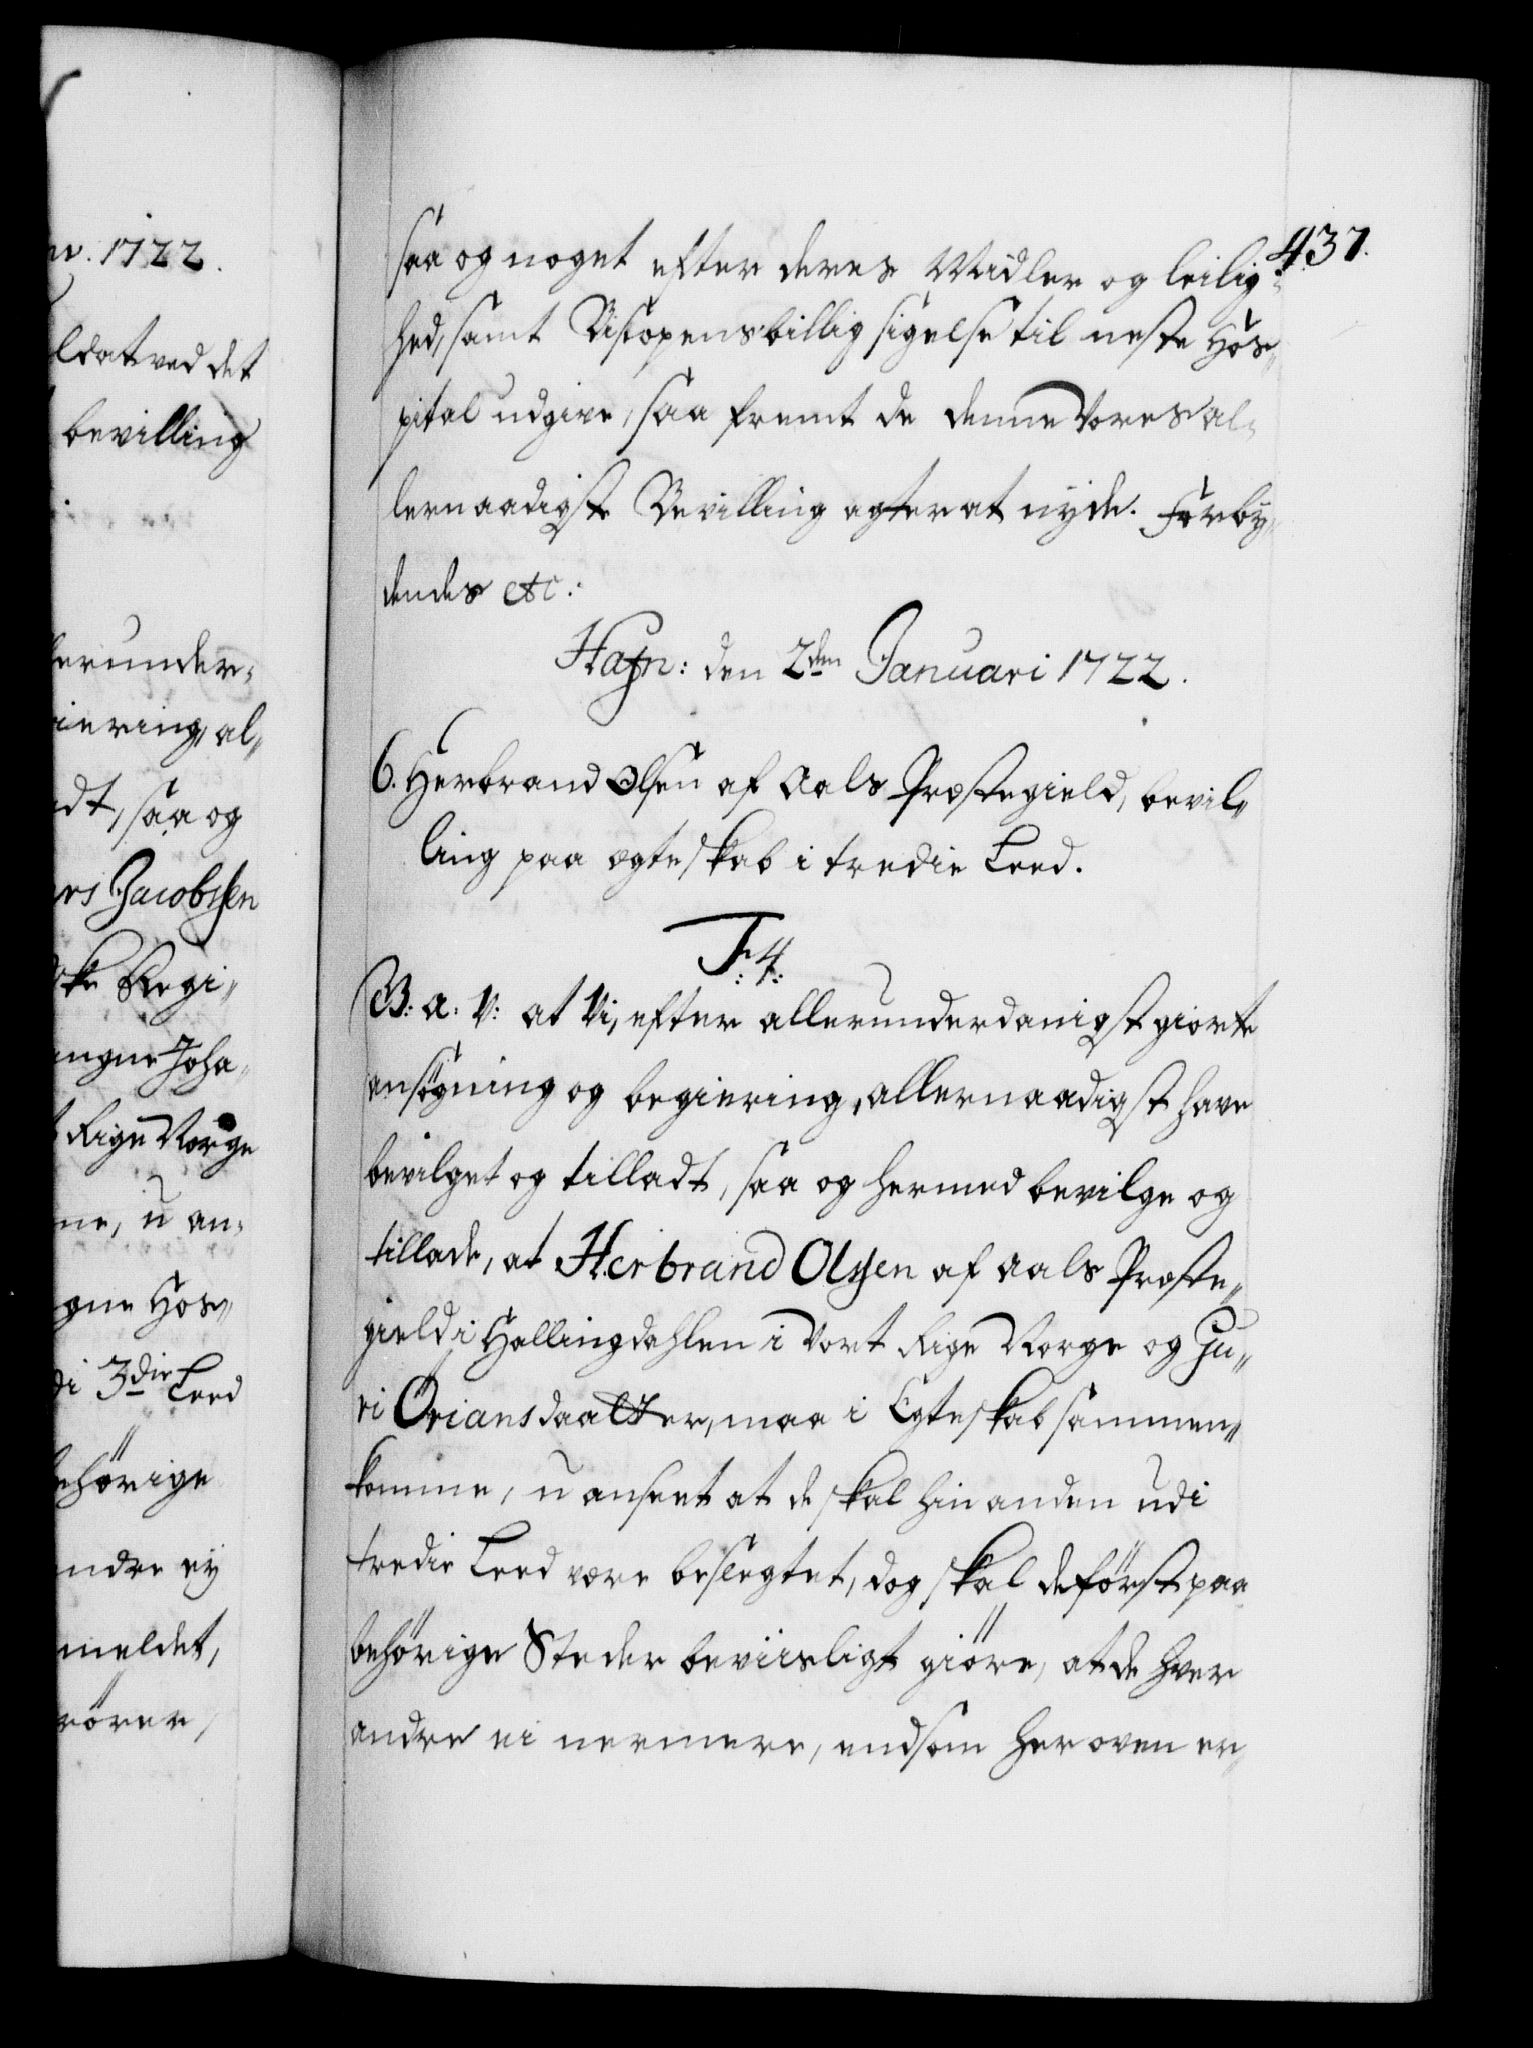 nv. 1722.
ldat ved det
bevilling
erunder-
iering, al-
dt, saa og
ers Jacobsen
ske Regi-
ungne Joha-
t Rige Norge
ne, u an-
gne Hos-
di 3die Leed
behörige
ndre ey
meldet,
rörer,
437.
saa og noget efter deres Midler og leilig-
hed, samt Biscopens billig sigelse til neste Hos-
pital udgive, saa fremt de denne Vores al-
lernaadigste Bevilling agter at nyde. Forby-
dendes etc:
Hafn: den 2den Januari 1722.
6. Herbrand Olsen af Aals Præstegield, bevil-
ling paa ægteskab i tredie Leed.
F: 4:
G: a: V: at Vi, efter allerunderdanigst giorte
ansøgning og begiering, allernaadigst have
bevilget og tilladt, saa og hermed bevilge og
tillade, at Herbrand Olssen af Aals Præste-
gield i Hallingdahlen i Vort Rige Norge og Gu-
ri Oriansdaatter, maa i Egteskab sammen-
komme, u anseet at de skal hin anden udi
tredie Leed være beslegtet, dog skal de först paa
behörige Steder beviisligt giöre, at de hver
andre ei nermere, end som her oven er-